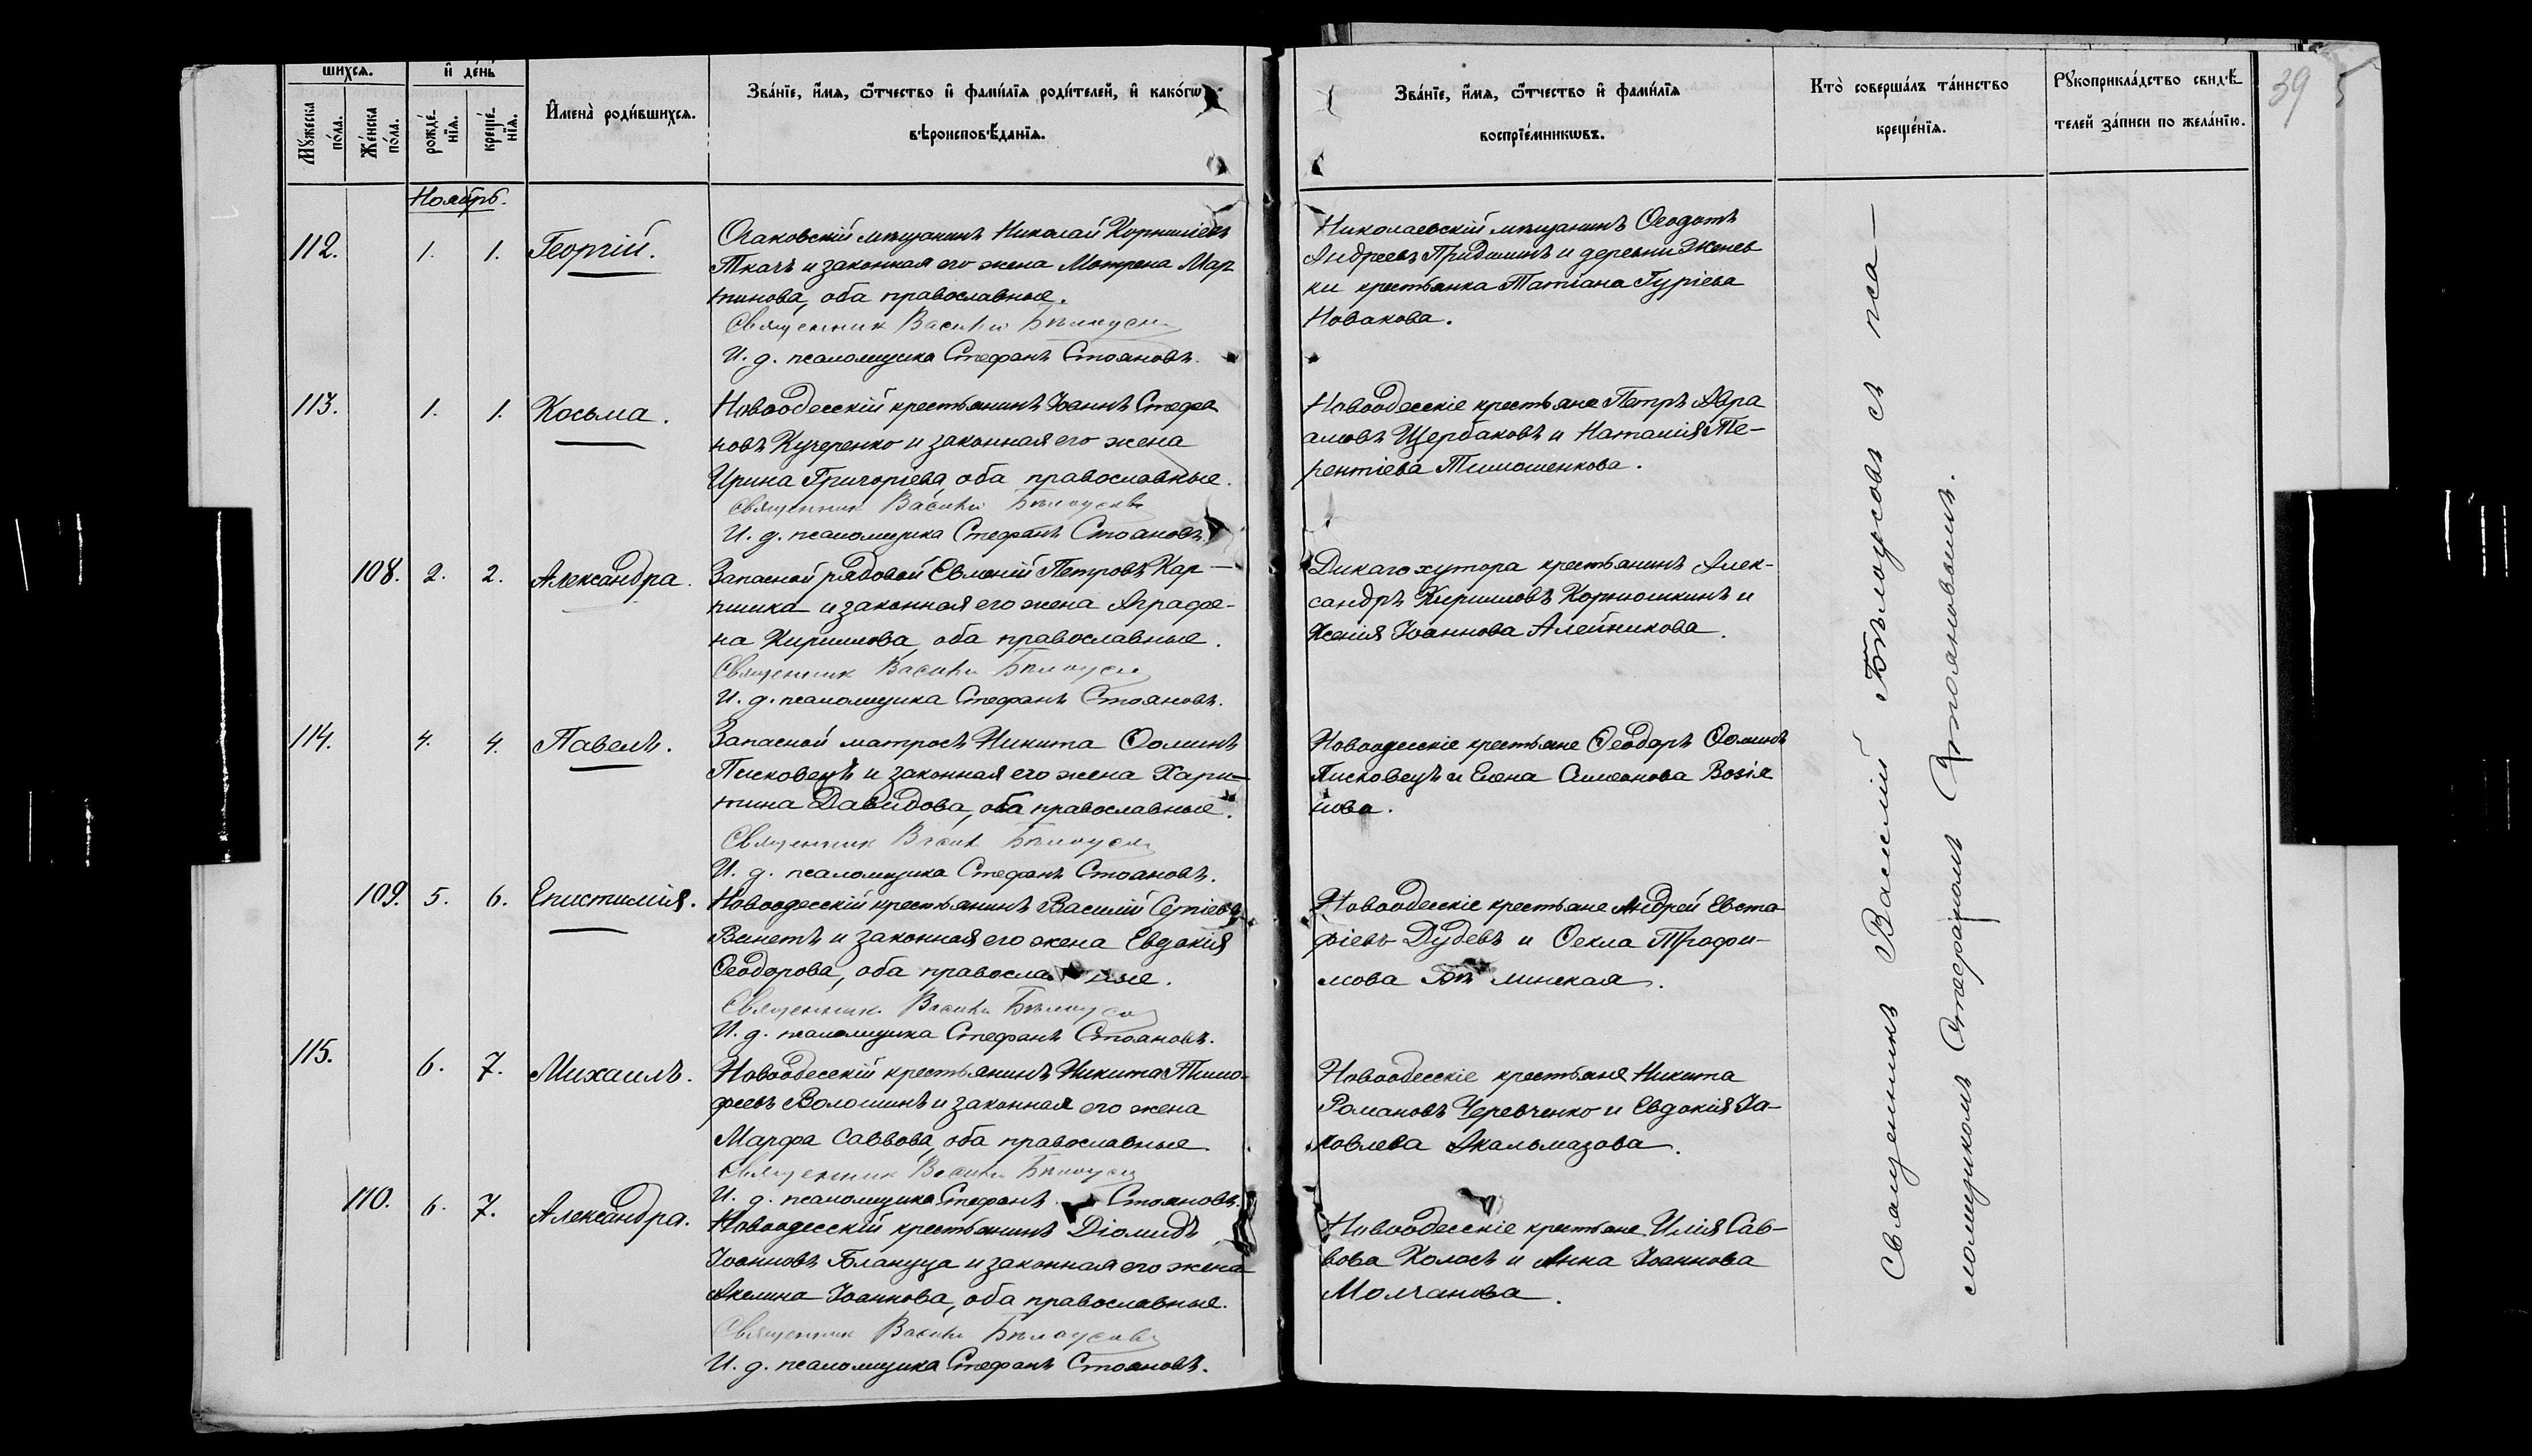 шихся.
и҆ де́нь
Мꙋжеска по́ла.
Же́нска по́ла.
рожде́-нїѧ.
креще́-нїѧ.
И҆мена̀ роди́вшихсѧ.
Зва́нїе, и҆́мѧ, ѻ҆́тчество и҆ фами́лїѧ роди́телей, и҆ како́гѡ
вѣроисповѣ́данїѧ.
Зва́нїе, и҆́мѧ, ѻ҆́тчество и҆ фами́лїѧ
воспрїе́мникѡвъ.
Кто̀ соверша́лъ та́инство
креще́нїѧ.
Рꙋкоприкла́дство свидѣ́-
телей за́писи по жела́нїю.
39
Ноябрь.
112. 1. 1. Георгій.
Очаковскій мѣщанинъ Николай Корниліевъ
Ткачъ и законная его жена Мотрона Мар
тинова, оба православные.
Священник Василій Бѣлоусовъ
И. д. псаломщика Стефанъ Стояновъ.
Николаевскій мѣщанинъ Ѳеодотъ
Андреевъ и деревни Женев
ки крестьянка Татіана Гуріева
Новакова.
113. 1. 1. Косьма.
Новоодесскій крестьянинъ Іоаннъ Стефа
новъ Кучеренко и законная его жена
Ирина Григоріева, оба православные.
Священник Василій Бѣлоусовъ
И. д. псаломщика Стефанъ Стояновъ.
Новоодесскіе крестьяне Петръ Авра
амовъ Щербаковъ и Наталія Те-
рентіева Тимошенкова.
108. 2. 2. Александра.
Запасной рядовой Евменій Петровъ Кар-
пишка и законная его жена Аграфе-
на Кириллова, оба православные.
Священник Василій Бѣлоусовъ
И. д. псаломщика Стефанъ Стояновъ.
Дикаго хутора крестьянинъ Алек-
сандръ Кирилловъ Корнюшкинъ и
Ксенія Іоаннова Алейникова.
114. 4. 4. Павелъ.
Запасной матросъ Никита Ѳоминъ
Писковецъ и законная его жена Хари-
тина Давидова, оба православные.
Священник Василій Бѣлоусовъ
И. д. псаломщика Стефанъ Стояновъ.
Новоодесскіе крестьяне Ѳеодоръ Ѳоминъ
Писковецъ и Елена Симеонова Возія
нова.
109. 5. 6. Епистимія.
Новоодесскій крестьянинъ Василій Сергіевъ
Винетъ и законная его жена Евдокія
Ѳеодорова, оба правосла ные.
Священник Василій Бѣлоусовъ
И. д. псаломщика Стефанъ Стояновъ.
Новоодесскіе крестьяне Андрей Евста
фіевъ Дудевъ и Ѳекла Трофи-
мова Бѣ линская.
115. 6. 7. Михаилъ.
Новоодесскій крестьянинъ Никита Тимо-
феевъ Волошинъ и законная его жена
Марфа Саввова, оба православные
Священник Василій Бѣлоусовъ
И. д. псаломщика Стефанъ Стояновъ.
Новоодесскіе крестьяне Никита
Романовъ Черевченко и Евдокія Іа-
ковлева Акальмазова.
110. 6. 7. Александра.
Новоодесскій крестьянинъ Діомидъ
Іоанновъ Блануца и законная его жена
Акелина Іоаннова, оба православные.
Священник Василій Бѣлоусовъ
И. д. псаломщика Стефанъ Стояновъ.
Новоодесскіе крестьяне Илія Сав-
вова Колосъ и Анна Іоаннова
Молчанова.
Священникъ Василій Бѣлоусовъ съ пса-
ломщикомъ Стефаномъ Стояновымъ.